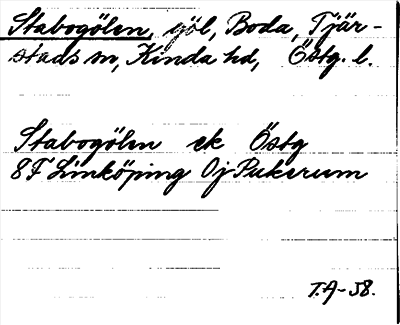 Stabogölen, göl, Boda, Tjär-
stads sn, Kinda hd, Östg. l.
Stabogölen ek Östg
8F Linköping Oj Pukerum
T.A-58.